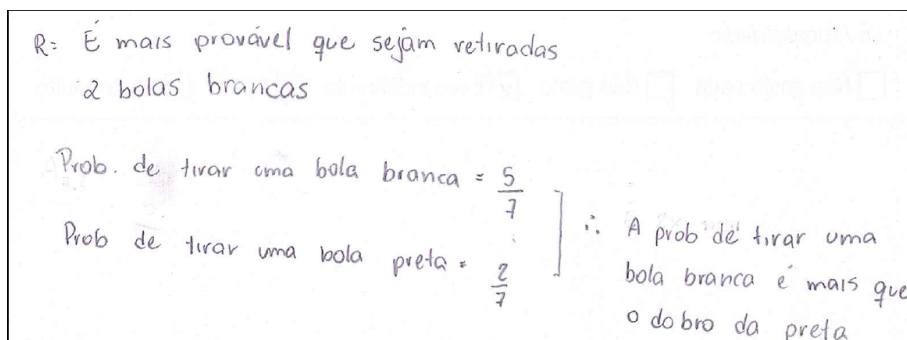 R: É mais provável que sejam retiradas
2 bolas brancas
Prob. de tirar uma bola branca = 5/7
Prob de tirar uma bola preta = 2/7
∴ A prob de tirar uma
bola branca é mais que
o dobro da preta